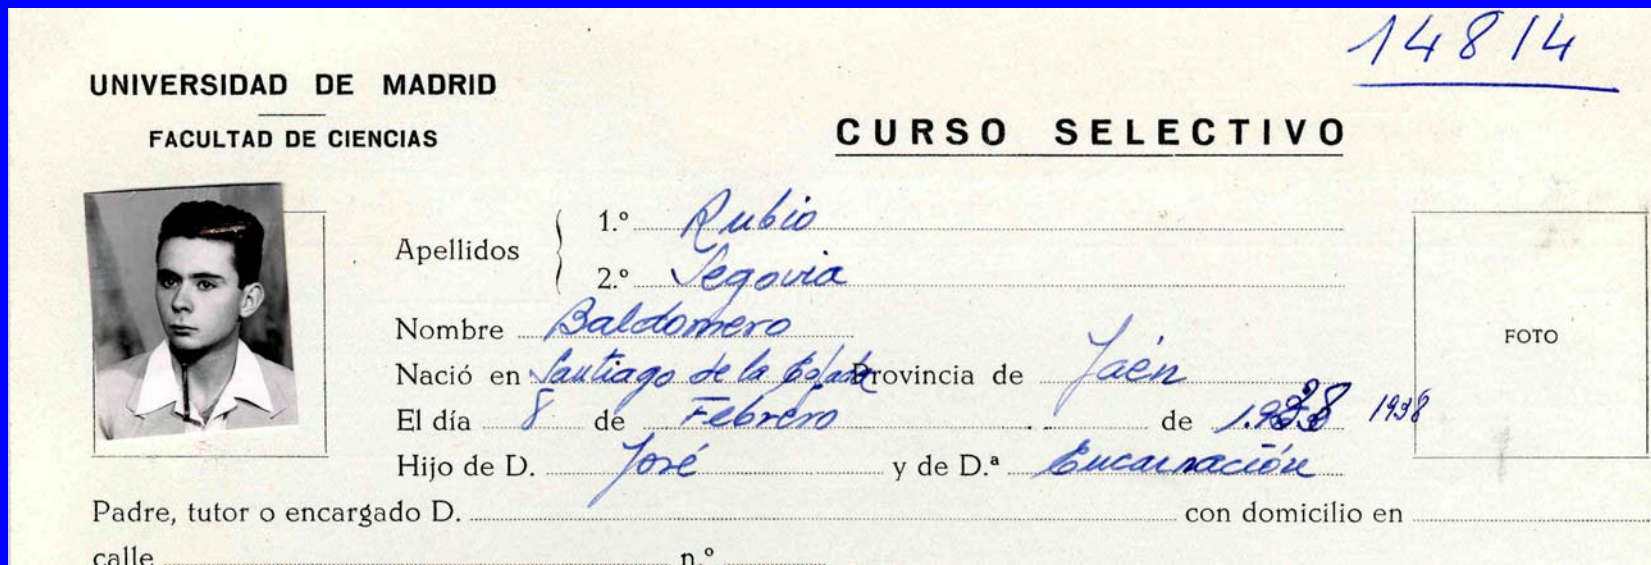 14814
UNIVERSIDAD DE MADRID
FACULTAD DE CIENCIAS
CURSO SELECTIVO
Apellidos
1.º Rubio
2.º Segovia
Nombre Baldomero
Nació en Santiago de la Espada Provincia de Jaén
El día 8 de Febrero de 1938 1938
Hijo de D. José y de D.ª Encarnación
FOTO
Padre, tutor o encargado D. con domicilio en
calle n.º